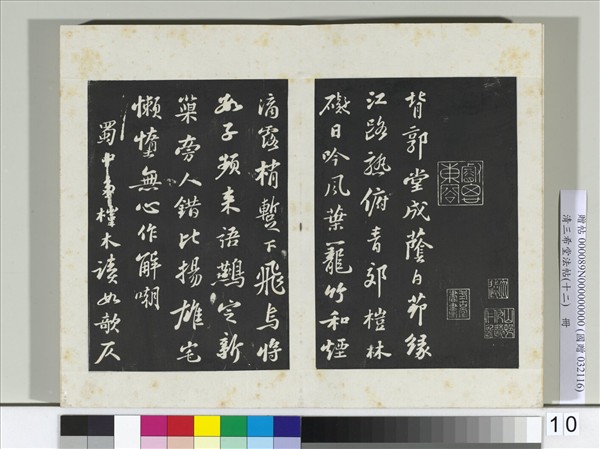 背郭堂成蔭白茅緣
江路熟俯青郊榿林
礙日吟風葉籠竹和煙
滴露梢蹔下飛烏將
數子頻來語鷰定新
巢旁人錯比揚雄宅
懶惰無心作解嘲
蜀中多榿木讀如欹仄
贈帖 000089N000000000 (國贈 032116)
清三希堂法帖(十二) 冊
10